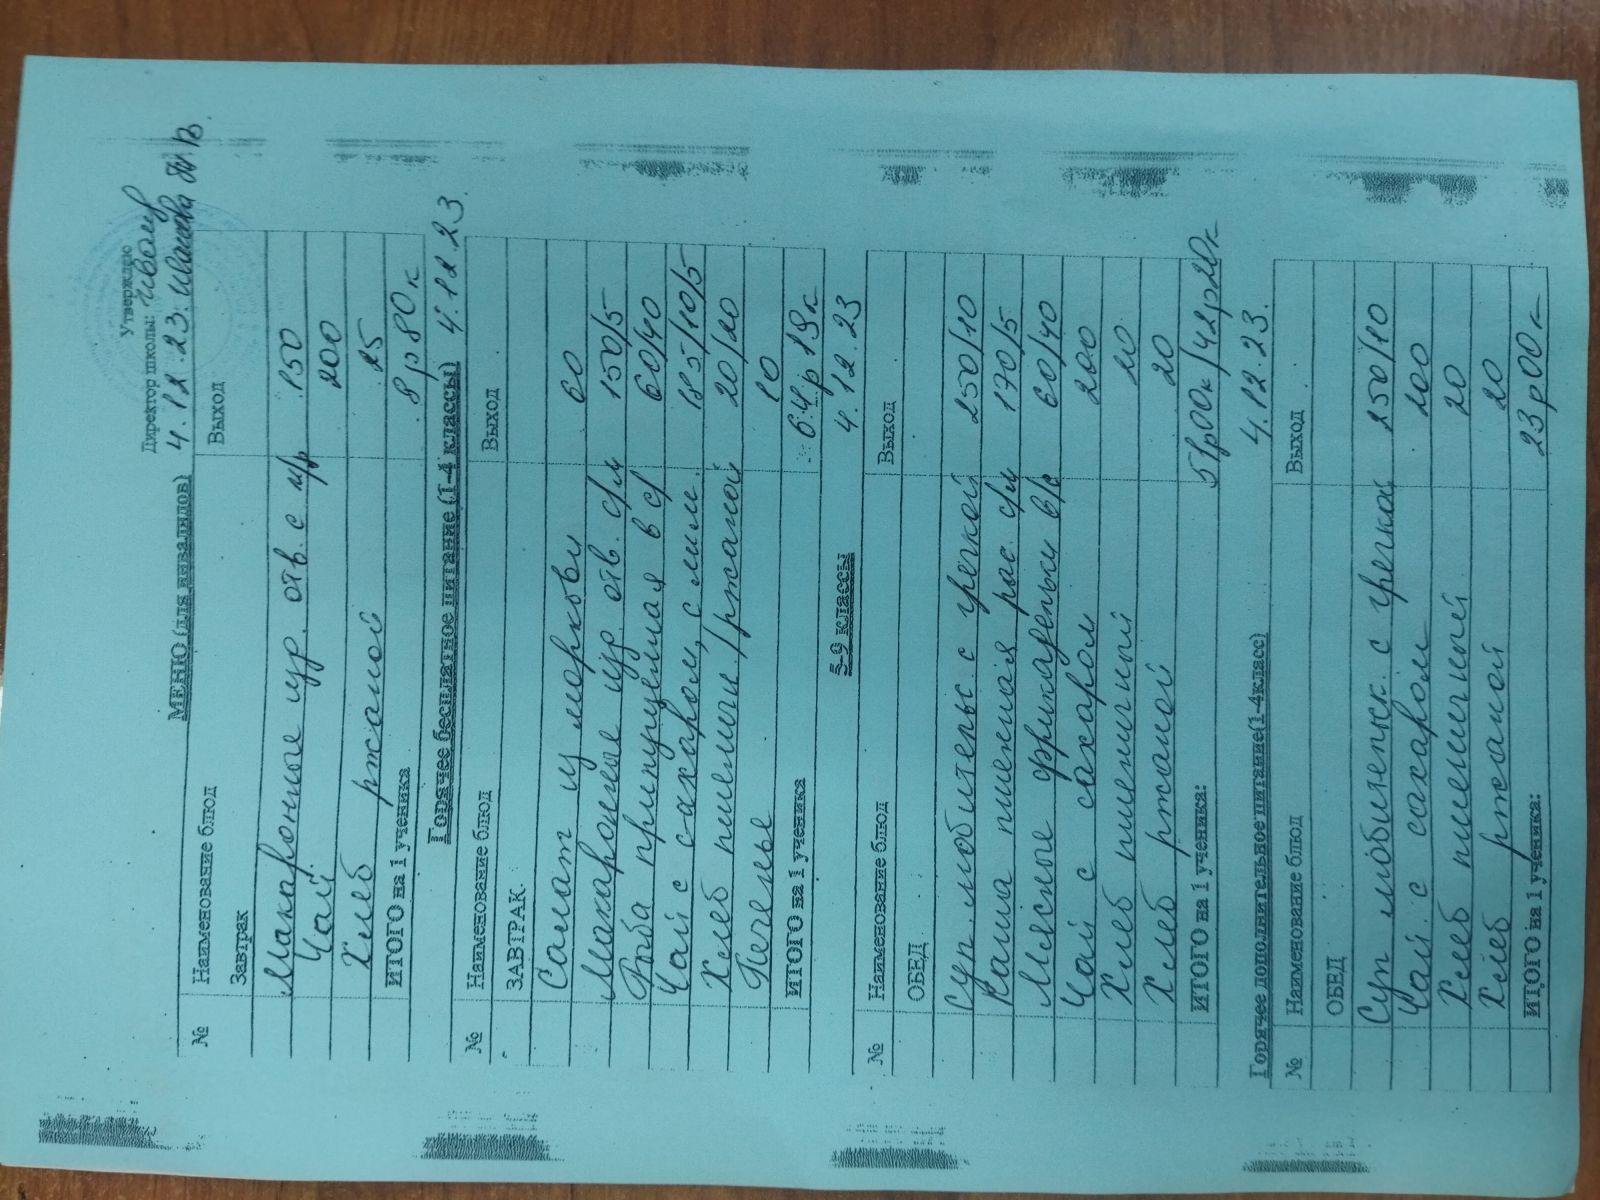 Утверждаю
Директор школы:
4.12.23. Иванова Т.В.
МЕНЮ (для инвалидов)
№ Наименование блюд Выход
Завтрак
Макаронные изд. отв. с м/р 150
Чай 200
Хлеб ржаной 25
ИТОГО на 1 ученика 8р80к
Горячее бесплатное питание (1-4 классы) 4.12.23.
№ Наименование блюд Выход
ЗАВТРАК.
Салат из моркови 60
Макаронные изд. отв. с/м 150/5
Рыба припущенная в с/ 60/40
Чай с сахаром, с лим. 185/10/5
Хлеб пшеничн./ржаной 20/20
Печенье 10
ИТОГО на 1 ученика 64р19к
5-9 классы 4.12.23
№ Наименование блюд Выход
ОБЕД
Суп любительс. с гречкой 250/10
Каша пшенная рас. с/м 170/5
Мясные фрикадельки в/с 60/40
Чай с сахаром 200
Хлеб пшеничный 20
Хлеб ржаной 20
ИТОГО на 1 ученика: 51р00к/42р20к
Горячее дополнительное питание(1-4класс) 4.12.23.
№ Наименование блюд Выход
ОБЕД
Суп любительск. с гречкой 250/10
Чай с сахаром 200
Хлеб пшеничный 20
Хлеб ржаной 20
ИТОГО на 1 ученика: 23р00к